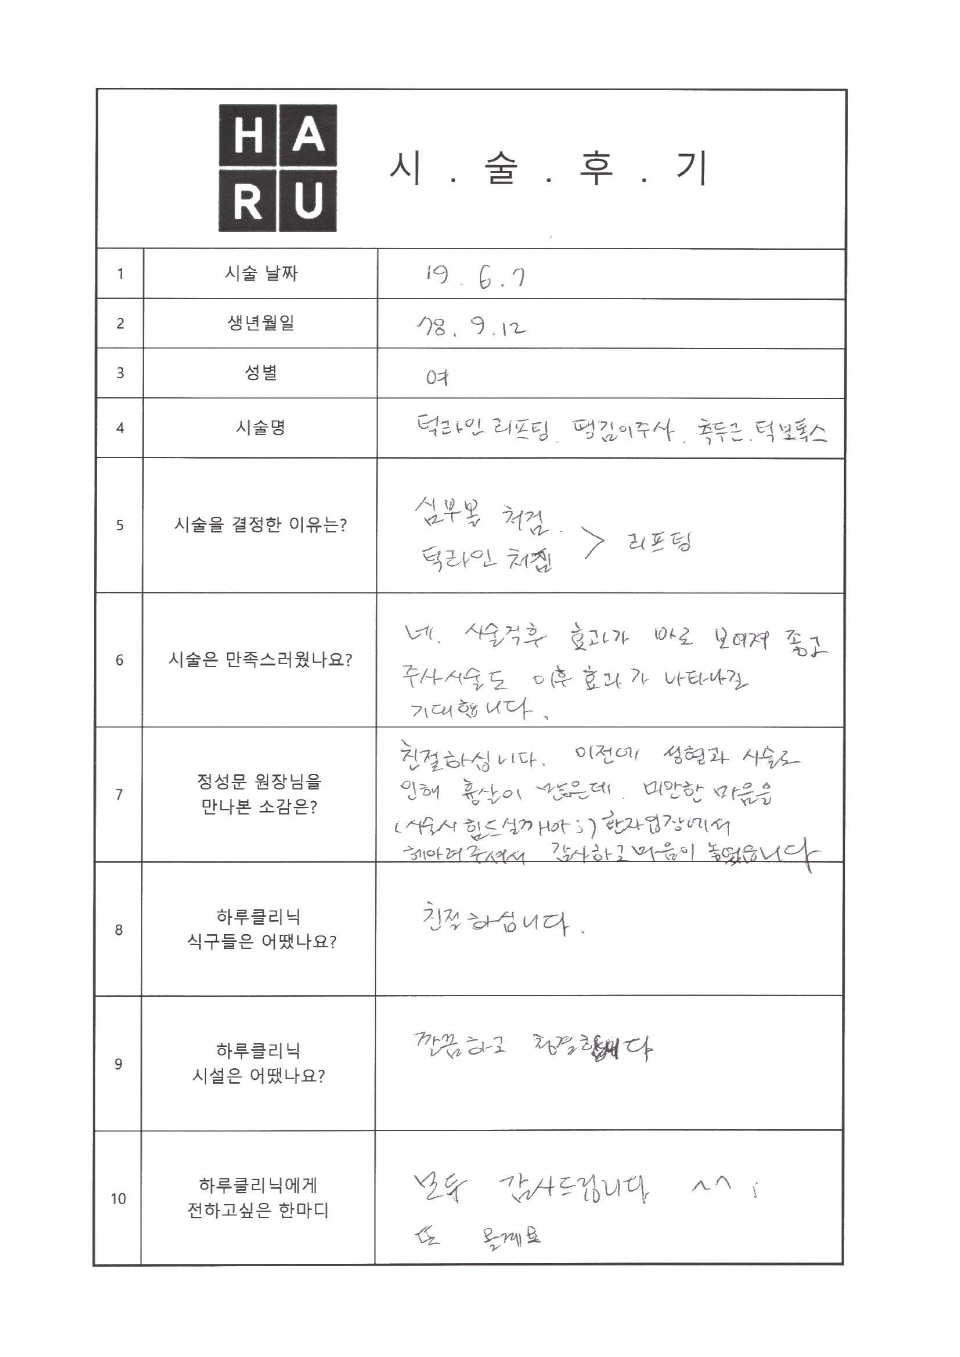 HA
RU
시 . 술 . 후 . 기
1 시술 날짜 19. 6. 7
2 생년월일 78. 9. 12
3 성별 여
4 시술명 턱라인 리프팅. 땡김이주사. 측두근. 턱보톡스
5 시술을 결정한 이유는?
심부볼 처짐.
턱라인 처짐 > 리프팅
6 시술은 만족스러웠나요?
네. 시술직후 효과가 바로 보여져 좋고
주사시술도 이후 효과가 나타나길
기대합니다.
7 정성문 원장님을
만나본 소감은?
친절하십니다. 이전에 성형과 시술로
인해 흉살이 많은데. 미안한 마음을
(시술시 힘드실까봐;) 환자입장에서
헤아려주셔서 감사하고 마음이 놓였습니다
8 하루클리닉
식구들은 어땠나요?
친절하십니다.
9 하루클리닉
시설은 어땠나요?
깔끔하고 청결합니다
10 하루클리닉에게
전하고싶은 한마디
모두 감사드립니다 ^^;
또 올게요